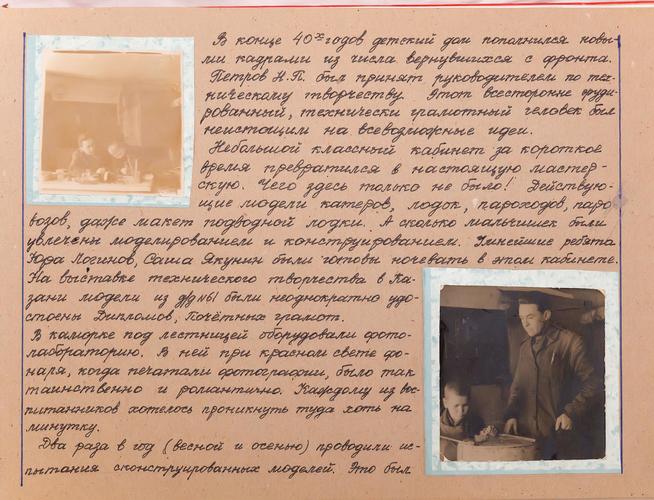 В конце 40х годов детский дом пополнился новы-
ми кадрами из числа вернувшихся с фронта.
Петров Н.П. был принят руководителем по тех-
ническому творчеству. Этот всесторонне эруди-
рованный, технически грамотный человек был
неистощим на всевозможные идеи.
Небольшой классный кабинет за короткое
время превратился в настоящую мастер-
скую. Чего здесь только не было! Действую-
щие модели катеров, лодок, пароходов, паро
возов, даже макет подводной лодки. А сколько мальчишек были
увлечены моделированием и конструированием. Умнейшие ребята
Юра Логинов, Саша Якунин были готовы ночевать в этом кабинете.
На выставке технического творчества в Ка-
зани модели из д/д №61 были неоднократно удо-
стоены Дипломов, Почётных грамот.
В каморке под лестницей оборудовали фото-
лабораторию. В ней при красном свете фо-
наря, когда печатали фотографии, было так
таинственно и романтично. Каждому из вос-
питанников хотелось проникнуть туда хоть на
минутку.
Два раза в год (весной и осенью) проводили ис-
пытания сконструированных моделей. Это был